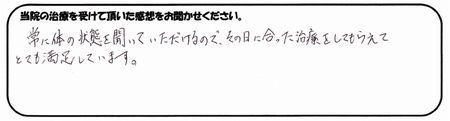 当院の治療を受けて頂いた感想をお聞かせください。
常に体の状態を聞いていただけるので、その日に合った治療をしてもらえて
とても満足しています。